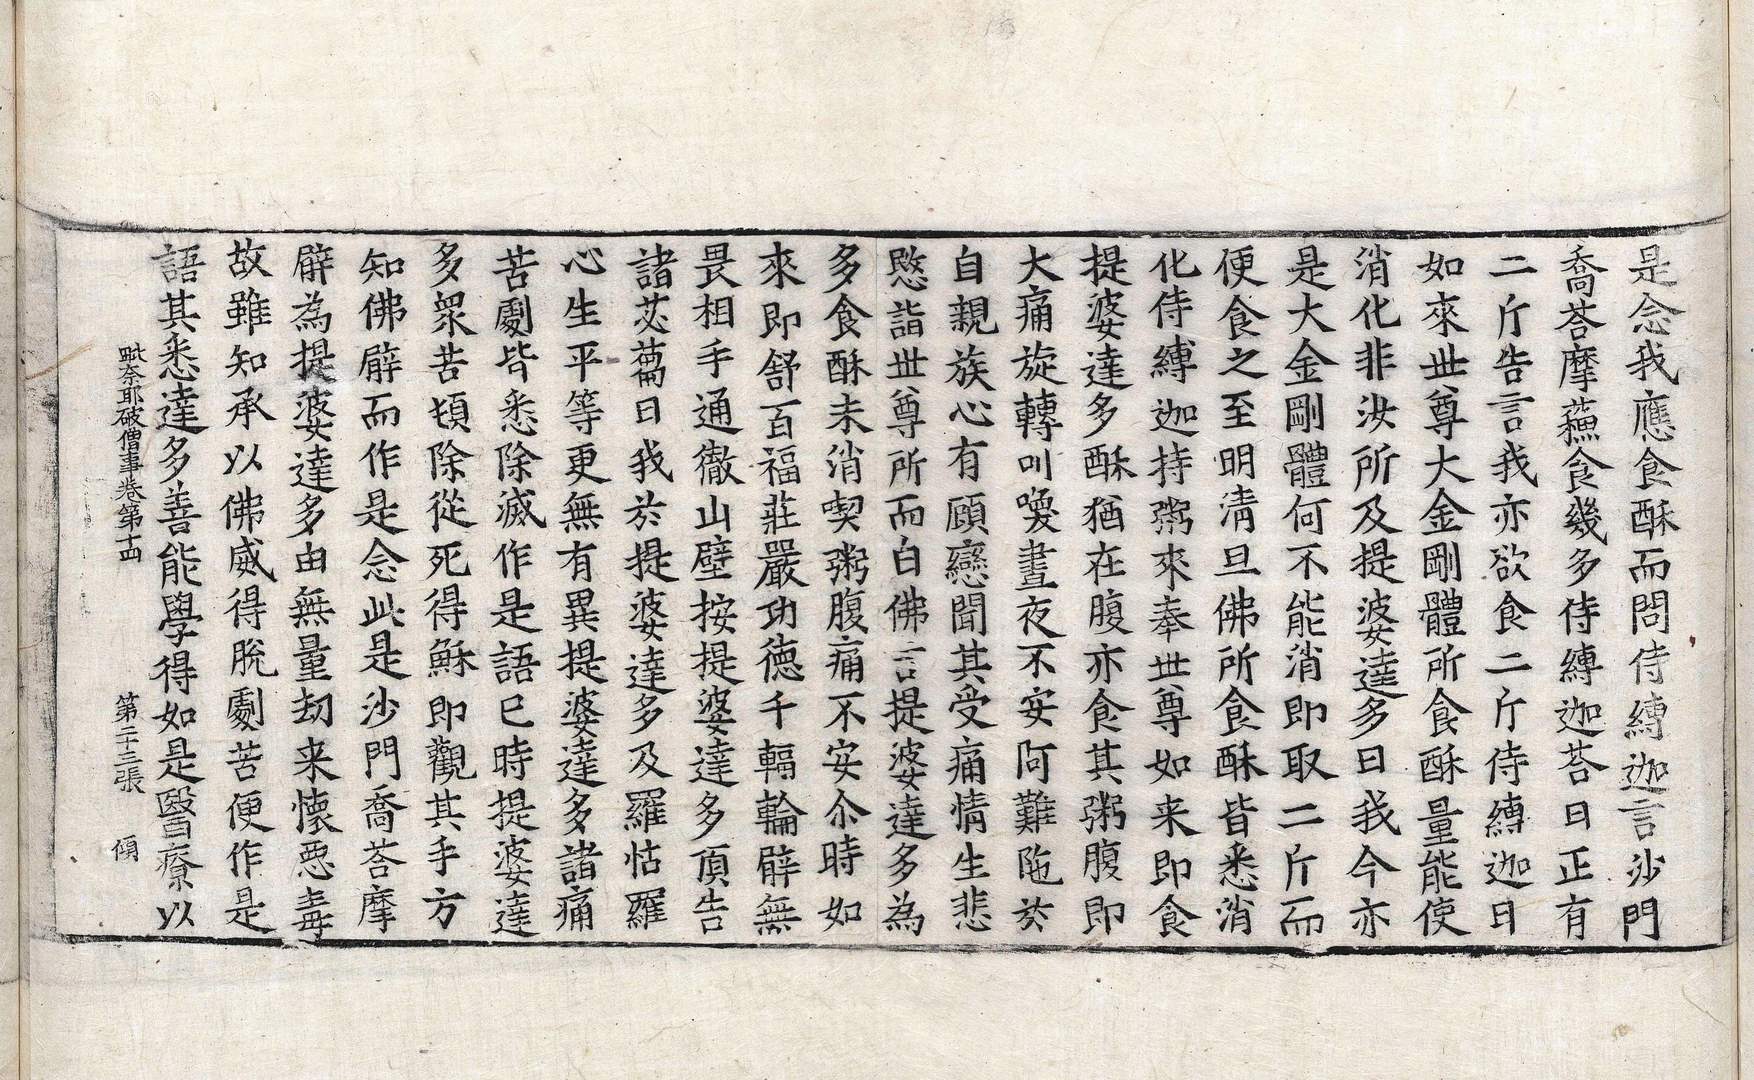 是念我應食酥而問侍縛迦言沙門
喬荅摩蘓食幾多侍縛迦荅曰正有
二斤告言我亦欲食二斤侍縛迦曰
如來世尊大金剛體所食酥量能使
消化非汝所及提婆達多曰我今亦
是大金剛體何不能消即取二斤而
便食之至明清旦佛所食酥皆悉消
化侍縛迦持粥來奉世尊如来即食
提婆達多酥猶在腹亦食其粥腹即
大痛旋轉叫喚晝夜不安阿難陁於
自親族心有顧戀聞其受痛情生悲
愍詣世尊所而白佛言提婆達多為
多食酥未消喫粥腹痛不安尒時如
來即舒百福莊嚴功德千輻輪臂無
畏相手通徹山壁按提婆達多頂告
諸苾蒭曰我於提婆達多及羅怙羅
心生平等更無有異提婆達多諸痛
苦劇皆悉除滅作是語已時提婆達
多衆苦頓除從死得穌即觀其手方
知佛臂而作是念此是沙門喬荅摩
臂為提婆達多由無量劫来懷惡毒
故雖知承以佛威得脫劇苦便作是
語其悉達多善能學得如是醫療以
毗奈耶破僧事卷第十四　第二十三張　傾